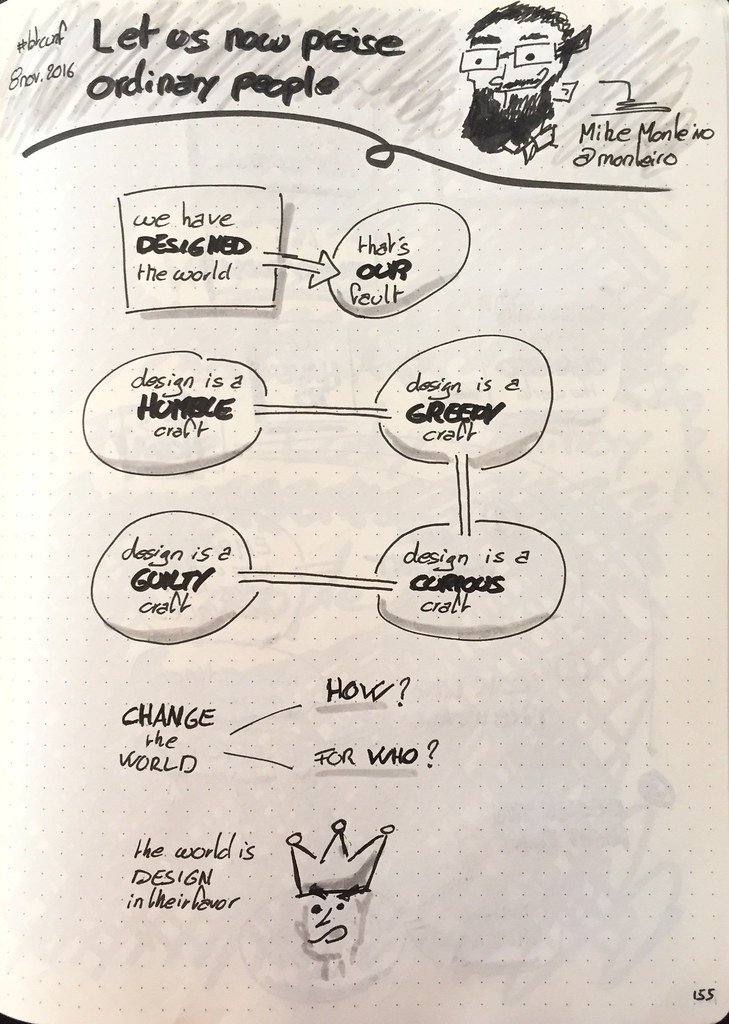 #btconf
8 nov. 2016
Let us now praise
ordinary people
Mike Monteiro
@monteiro
we have
DESIGNED
the world
that's
OUR
fault
design is a
HUMBLE
craft
design is a
GREEDY
craft
design is a
GUILTY
craft
design is a
CURIOUS
craft
CHANGE
the
WORLD
HOW?
FOR WHO?
the world is
DESIGN
in their favor
155